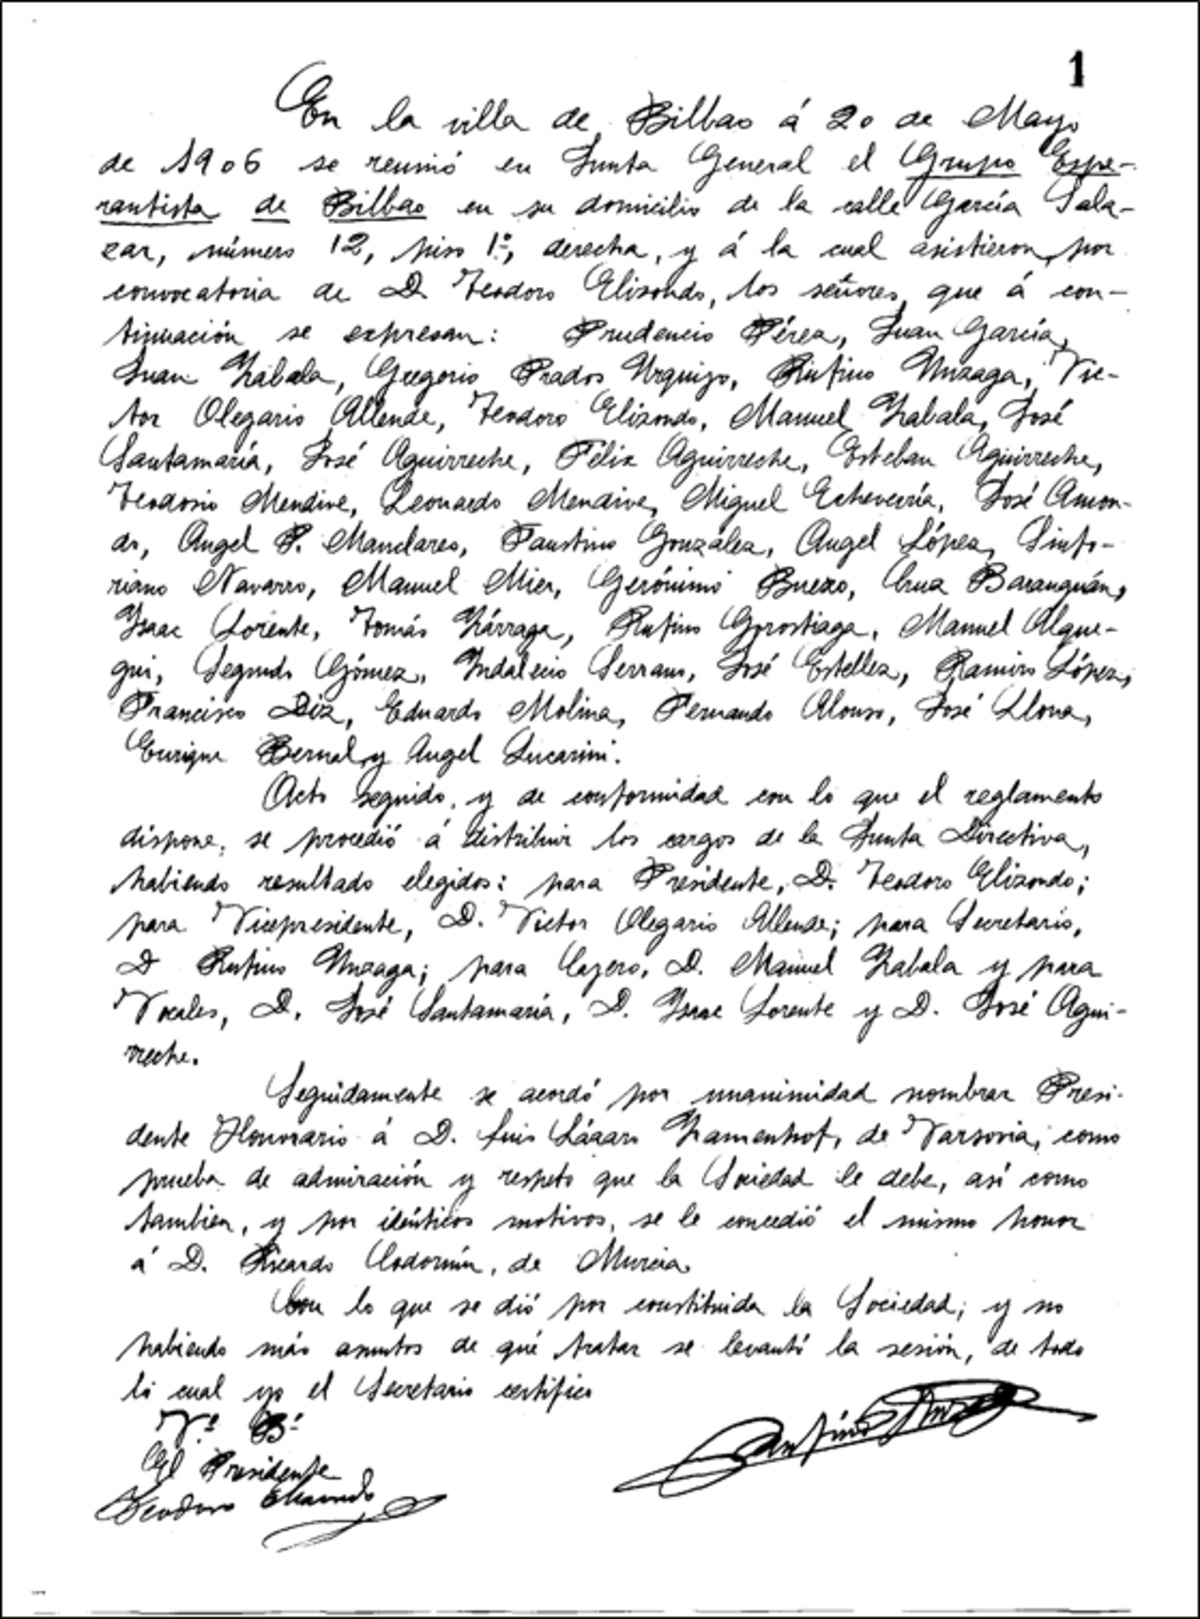 1
En la villa de Bilbao á 20 de Mayo
de 1906 se reunió en Junta General el Grupo Espe-
rantista de Bilbao en su domicilio de la calle García Sala-
zar, número 12, piso 1º, derecha, y á la cual asistieron, por
convocatoria de D. Teodoro Elizondo, los señores, que á con-
tinuación se expresan: Prudencio Pérez, Juan García,
Juan Zabala, Gregorio Prados Urquijo, Rufino Unzaga, Vic-
tor Olegario Allende, Teodoro Elizondo, Manuel Zabala, José
Santamaría, José Aguirreche, Félix Aguirreche, Esteban Aguirreche,
Teodosio Mendive, Leonardo Mendive, Miguel Echeverría, José Amon-
do, Angel P. Manclares, Faustino González, Angel López, Sinfo-
riano Navarro, Manuel Mier, Gerónimo Buezo, Barauguán,
Ysaac Lorente, Tomás Zárraga, Rufino Gorostiaga, Manuel Alque-
gui, Segundo Gómez, Yndalecio Serrano, José Estellez, Ramiro López,
Francisco Diz, Eduardo Molina, Fernando Alonso, José Llona,
Enrique Bernal y Angel Lucarini.
Acto seguido, y de conformidad con lo que el reglamento
dispone, se procedió á distribuir los cargos de la Junta Directiva,
habiendo resultado elegidos: para Presidente, D. Teodoro Elizondo;
para Vicepresidente, D. Victor Olegario Allende; para Secretario,
D Rufino Unzaga; para Cajero, D. Manuel Zabala y para
Vocales, D. José Santamaría, D. Ysaac Lorente y D. José Agui-
rreche.
Seguidamente se acordó por unanimidad nombrar Presi-
dente Honorario á D. Luis Lázaro Zamenhof, de Varsovia, como
prueba de admiración y respeto que la Sociedad le debe, así como
tambien, y por idénticos motivos, se le concedió el mismo honor
á D. Ricardo Codorníu, de Murcia.
Con lo que se dió por constituida la Sociedad; y no
habiendo más asuntos de qué tratar se levantó la sesión, de todo
lo cual yo el Secretario certifico
Vº Bº
El Presidente
Teodoro Elizondo
Rufino Unzaga